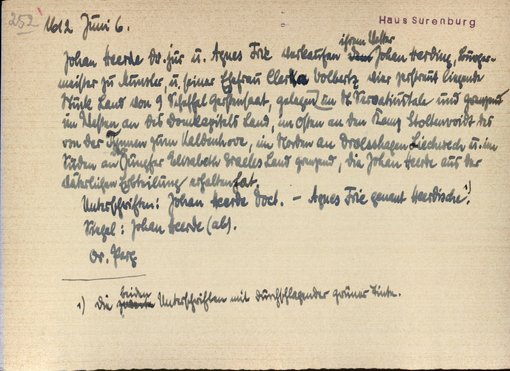 252
1612 Juni 6.
Haus Surenburg
Johan Heerde Dr. jur u. Agnes Frie verkaufen ihrem Vetter Johan Herding, Burger-
meister zu Munster, u. seiner Ehefrau Clara Volbertz vier zerstreut liegende
Stück Land von 9 Scheffel Gerstensaat, gelegen in St. Servatiustale und grenzend
im Westen an des Domkapitels Land, im Osten an den Kamp
von der zum Kaldenhove, im Norden an u. im
Süden an Jungfer Elisabeth Land grenzend, die Johan Heerde aus der
Erbteilung erhalten hat.
Unterschriften: Johan Heerde Doct. - Agnes Frie genant Heerdische ¹)
Siegel: Johan Heerde (ab).
Or. Perg
¹) Die beiden Unterschriften mit durchschlagender grüner Tinte.